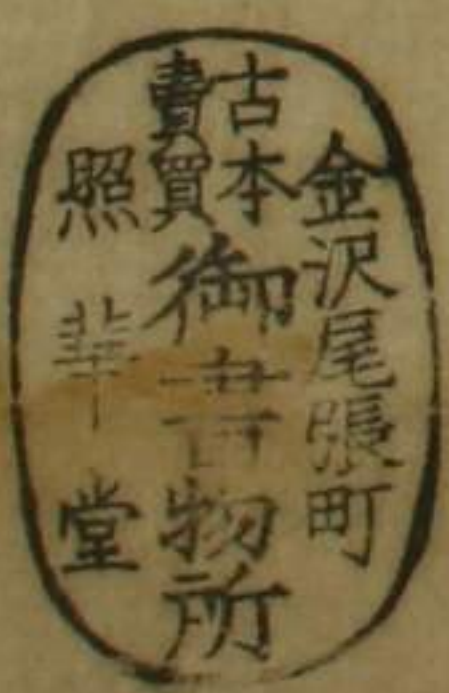 金沢尾張町
古本
賣買
御書物所
照華堂